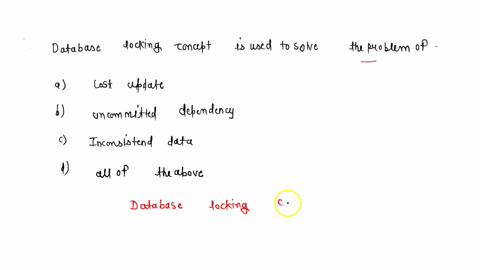 Database locking concept is used to solve the problem of.
a) Lost update
b) uncommitted dependency
c) Inconsistend data
d) all of the above
Database locking c